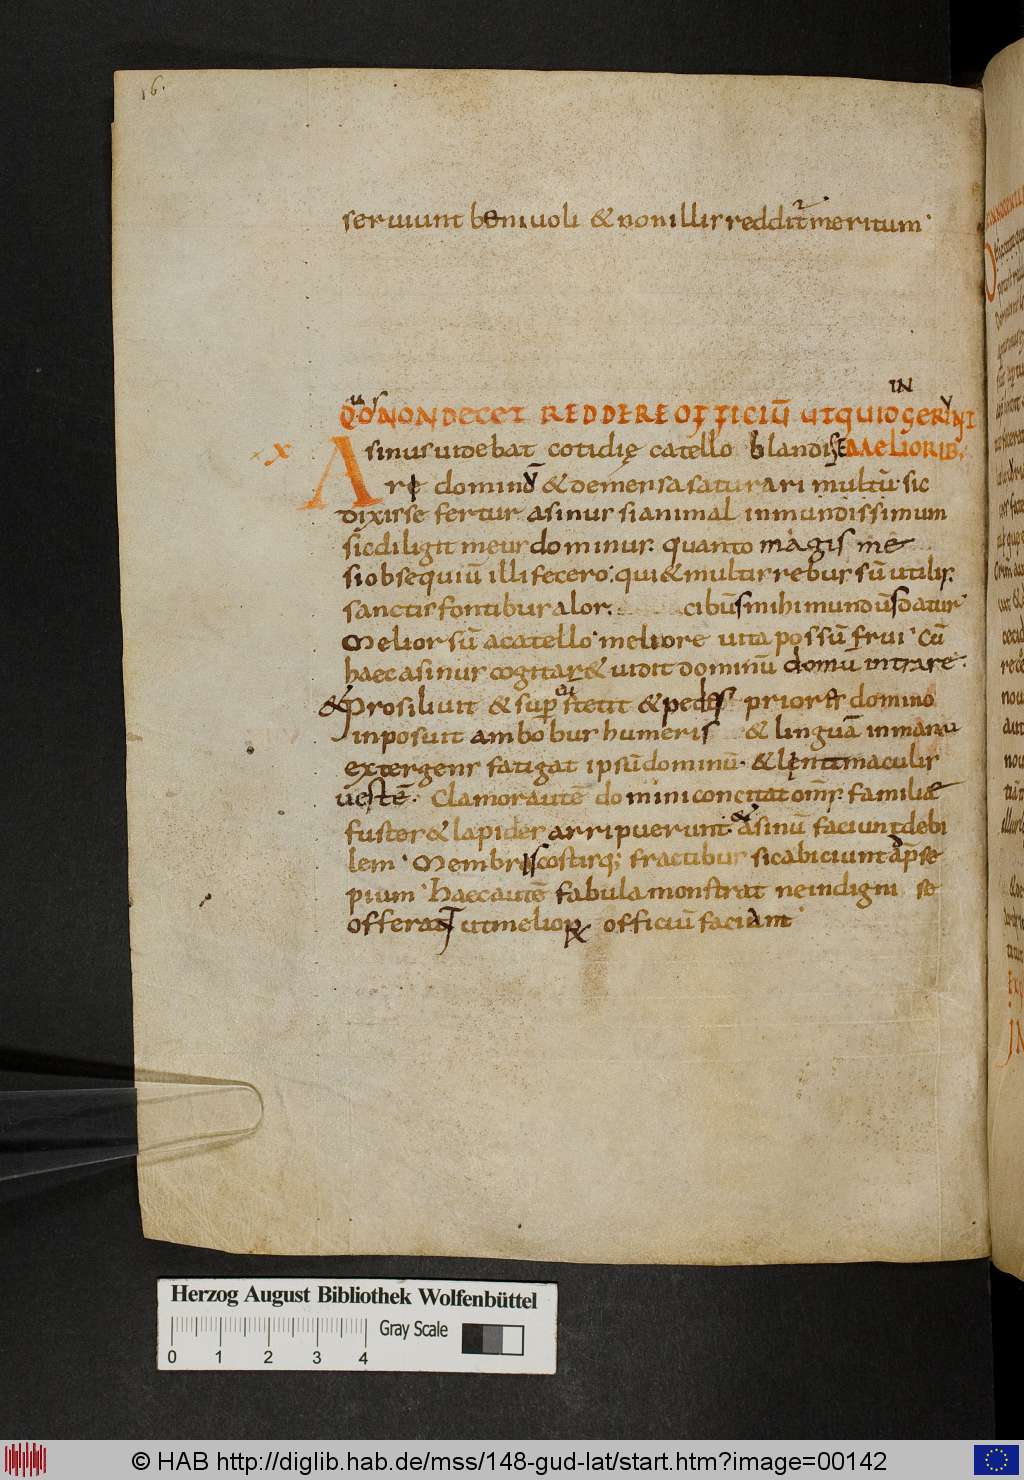 16.
seruiunt beniuoli & non illis redditur meritum
IN
QUOS NON DECET REDDERE OFFICIŪ UT QUID
X
Asinus uidebat cotidię catello blandi MELIORIB;
re dominū & de mensa saturari multū. sic
dixisse fertur asinus si animal inmundissimum
sic diligit meus dominus. quanto magis me
si obsequiū illi fecero. qui & multis rebus sū utilis.
sanctis fontibus alor. cibus mihi mundus datur
Melior sū a catello. meliore uita possū frui. Cū
haec asinus cogitar& uidit dominū domū intrare.
& Prosiliuit & sup stetit & pedes priores domino
inposuit ambobus humeris & linguā in manu
extergens fatigat ipsū dominū. & lentimaculis
uestē. Clamor autē domini concitat omē familiae
fustes & lapides arripuerunt. & asinū faciunt debi
lem. Membris costisq; fractibus sic abiciunt ap se
pium. haec autē fabula monstrat ne indigni se
offerant ut melior officiū faciant
Herzog August Bibliothek Wolfenbüttel
Gray Scale
0 1 2 3 4
© HAB http://diglib.hab.de/mss/148-gud-lat/start.htm?image=00142